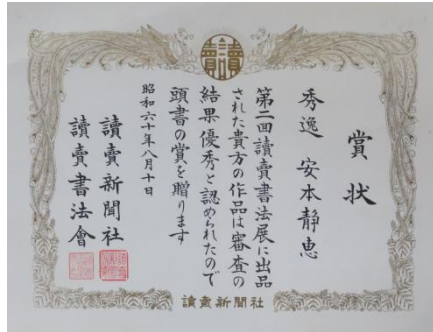 讀賣
賞状
秀逸 安本静恵
第二回讀賣書法展に出品
された貴方の作品は審査の
結果優秀と認められたので
頭書の賞を贈ります
昭和六十年八月十日
讀賣新聞社
讀賣書法會
讀賣新聞社